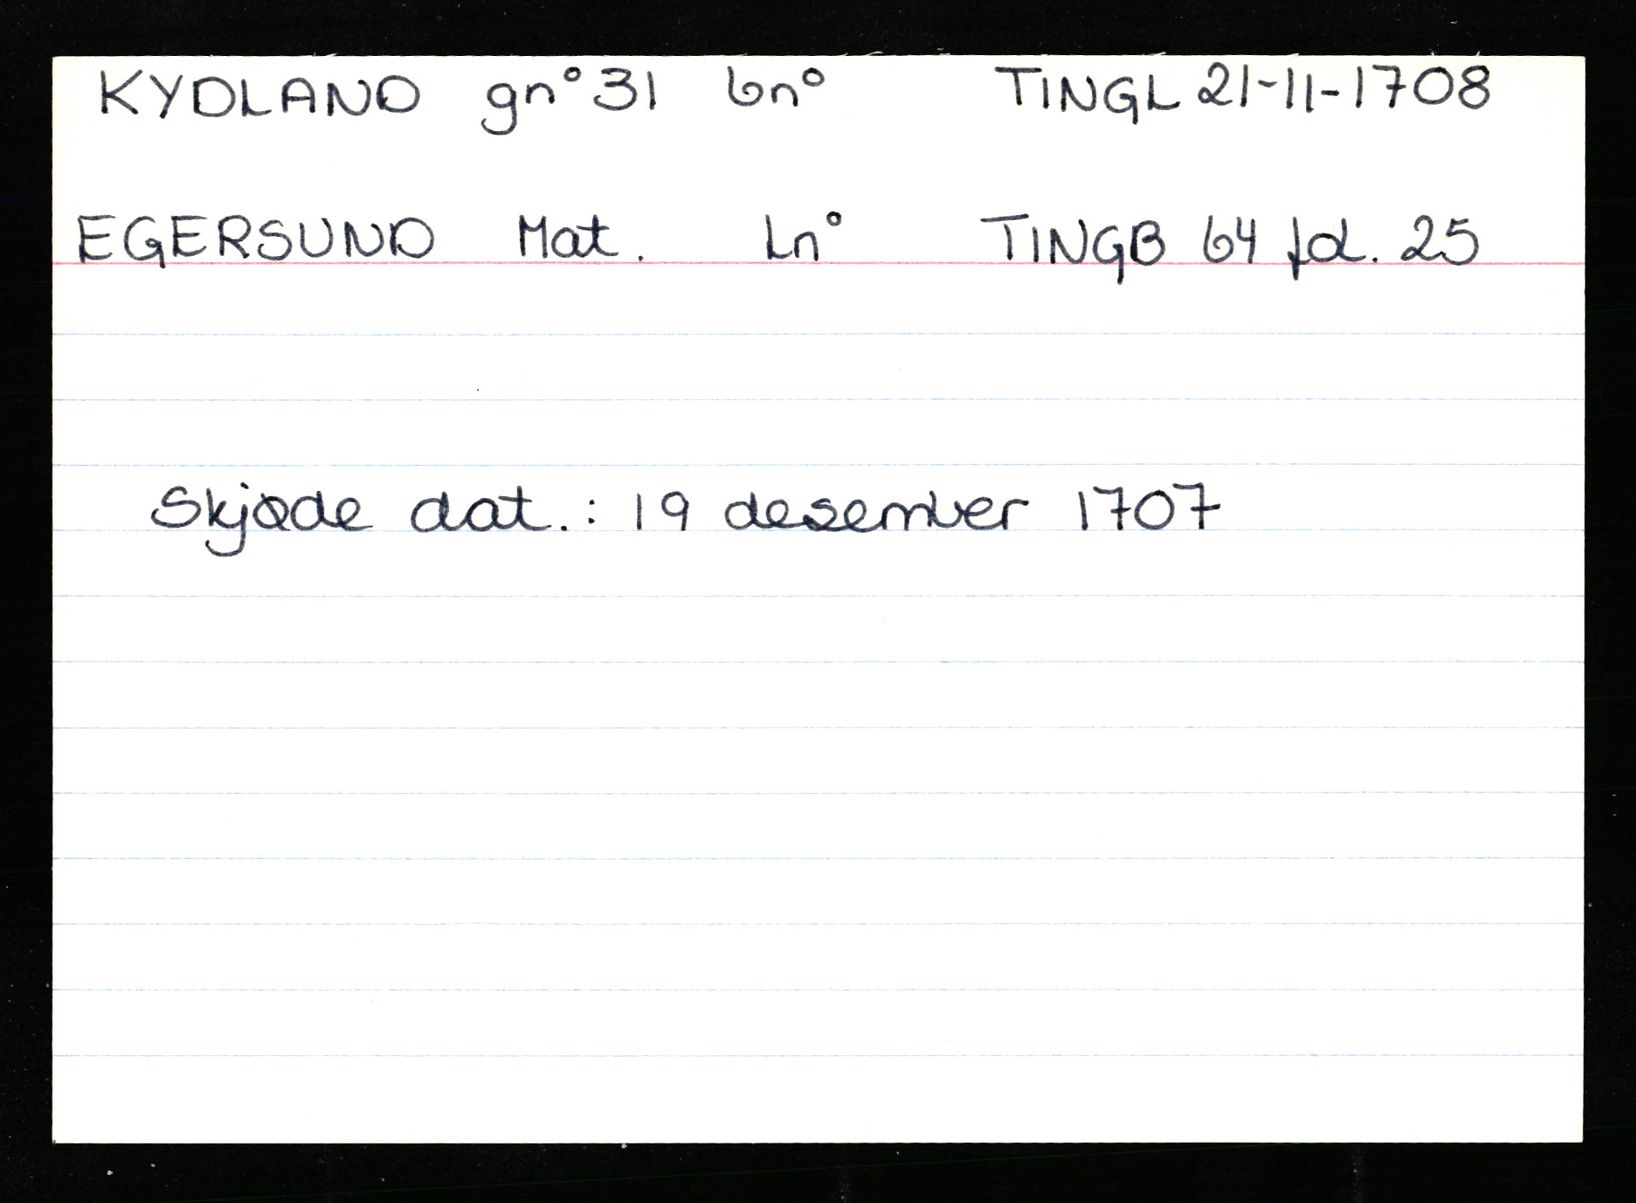 KYDLAND gn° 31 bn° TINGL 21-11-1708
EGERSUND Mat. Ln° TINGB 64 fol. 25
Skjøde dat.: 19 desember 1707